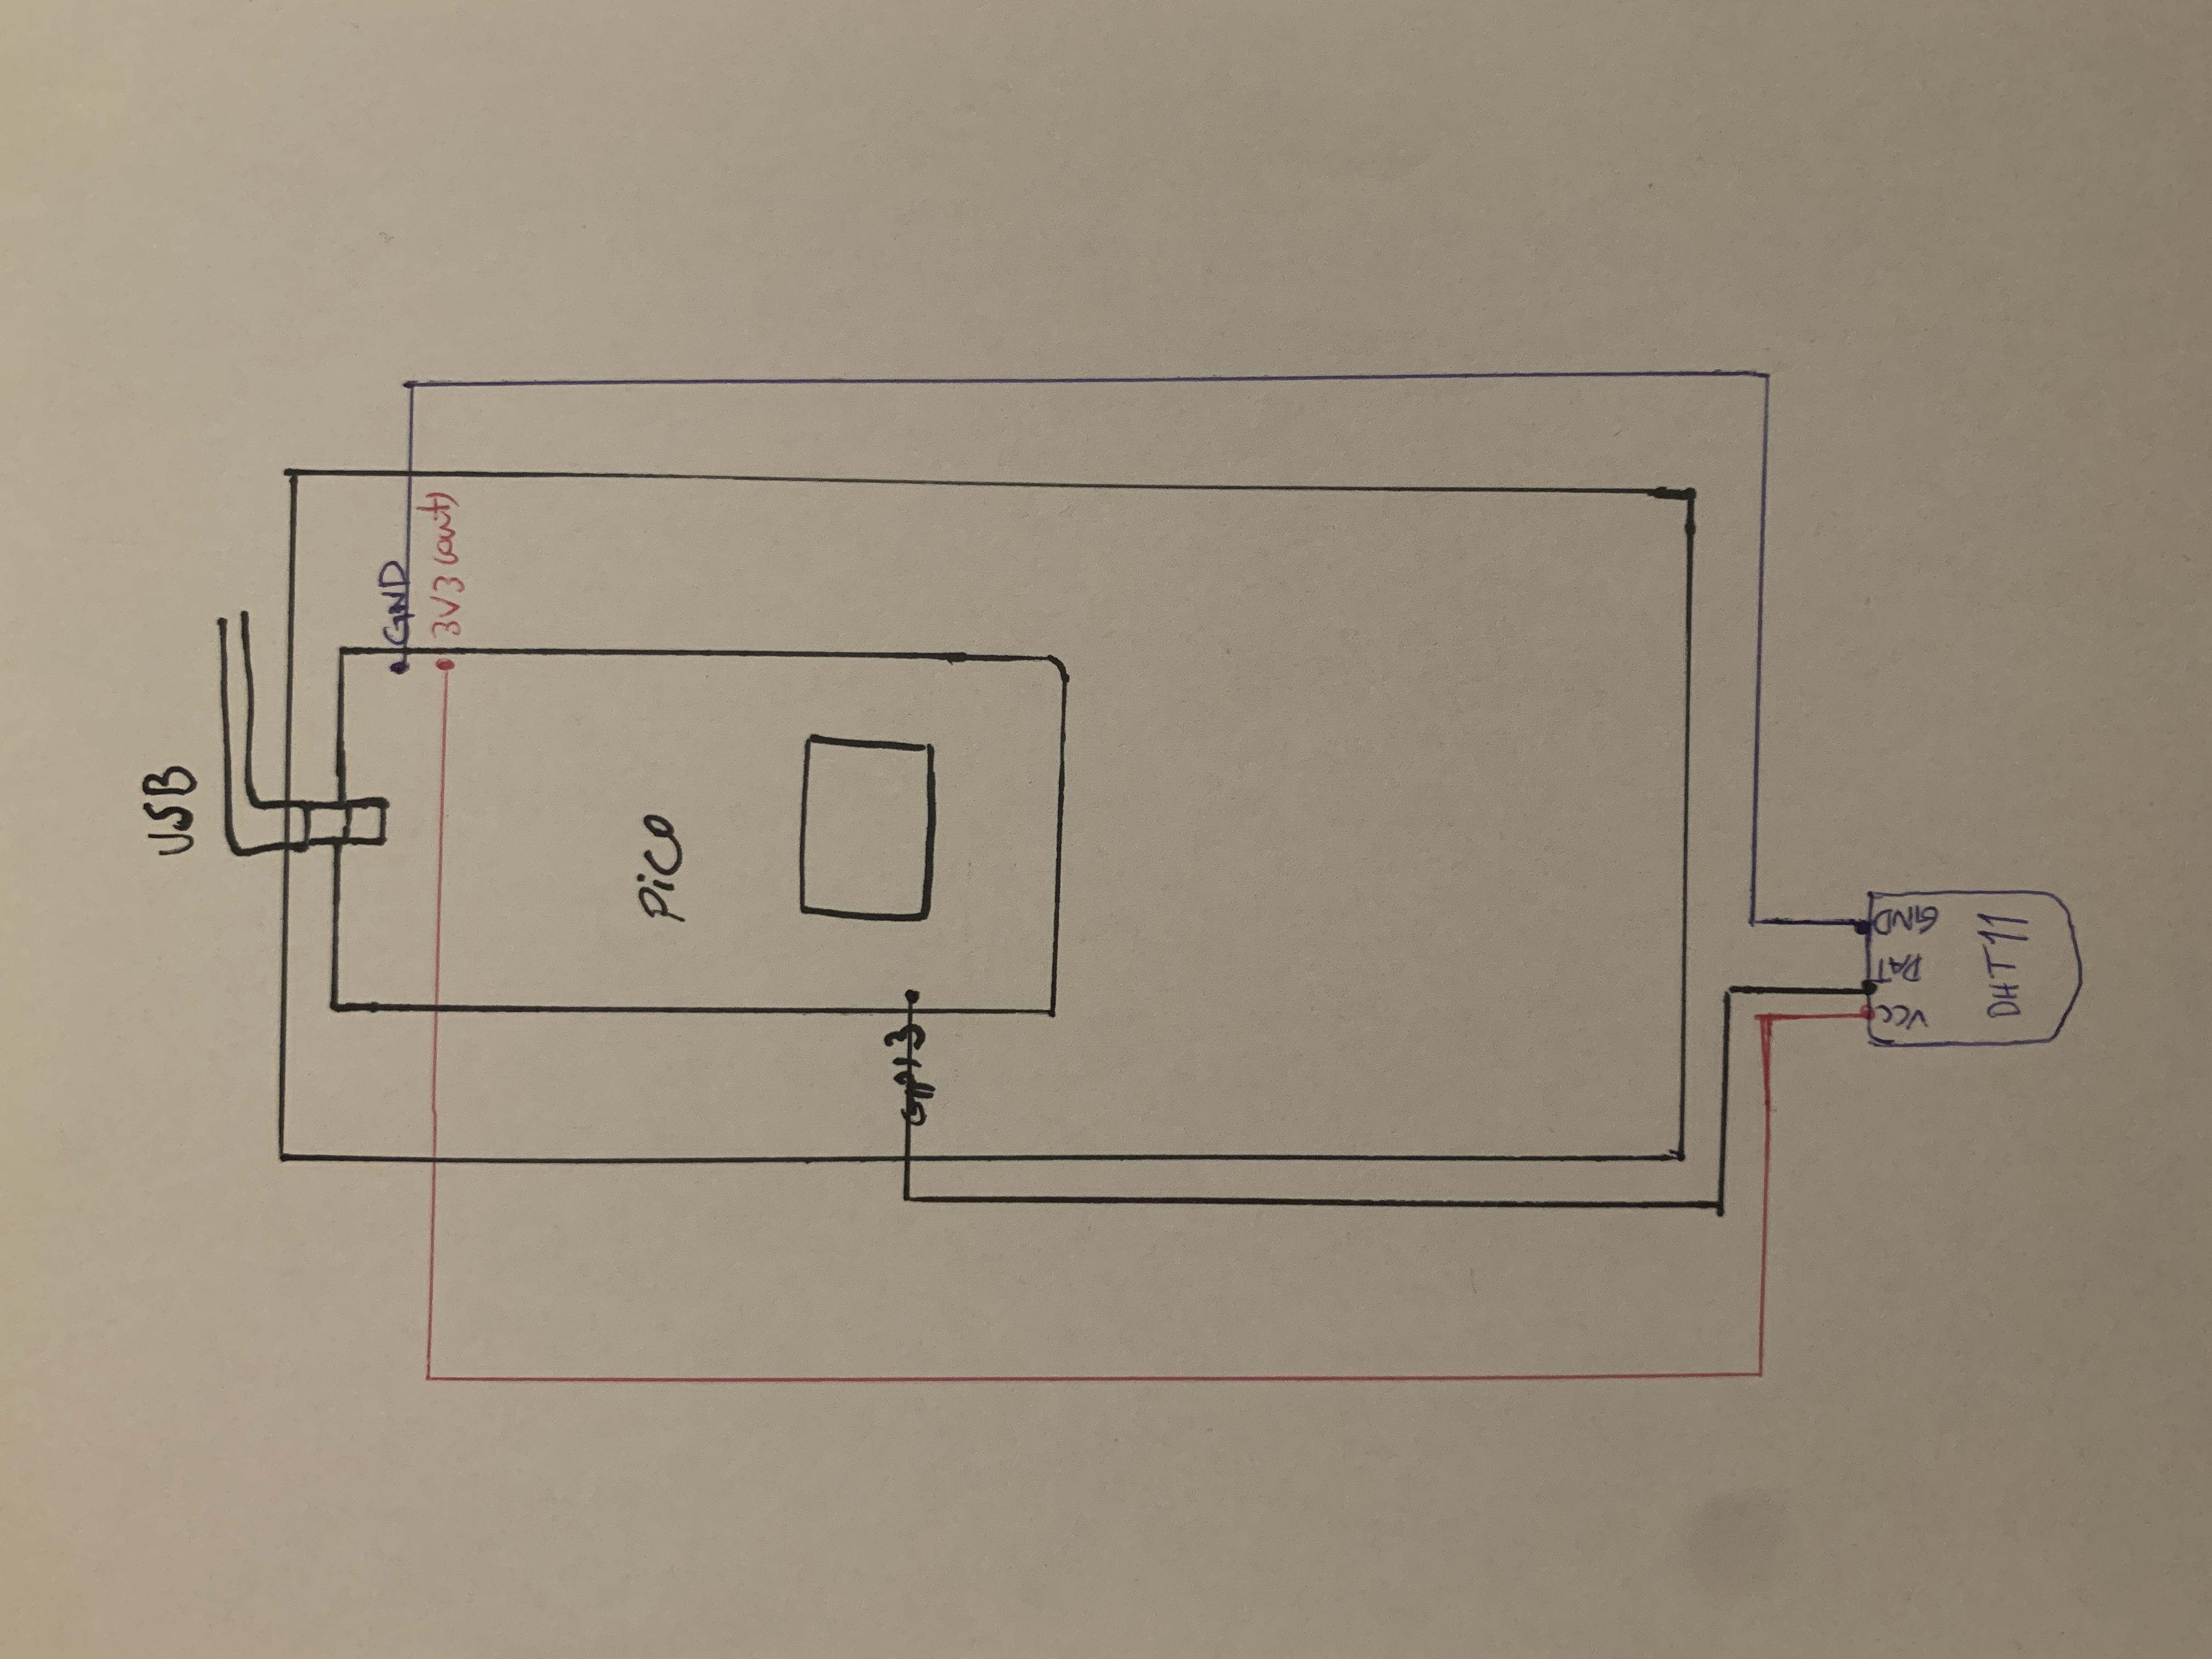 USB
GND
3V3 (out)
Pico
GP13
VCC
DAT
GND
DHT11